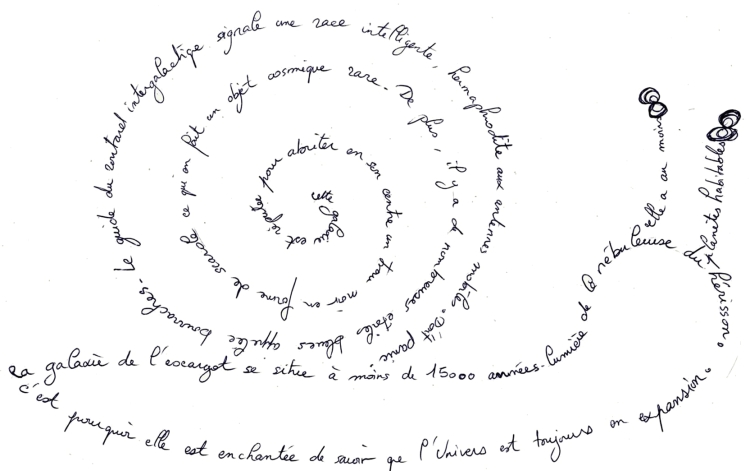 La galaxie de l'escargot se situe à moins de 15000 années-lumière de la nébuleuse du hérisson.
elle a au moins
planètes habitables
cette galaxie est réputée pour abriter en son centre un trou noir en forme de scarole ce qui en fait un objet cosmique rare. De plus, il y a de nombreuses étoiles bleues appelée bourraches. Le guide du routard intergalactique signale une race intelligente, hermaphrodite aux antennes mobiles. Don't panic
c'est pourquoi elle est enchantée de savoir que l'Univers est toujours en expansion.